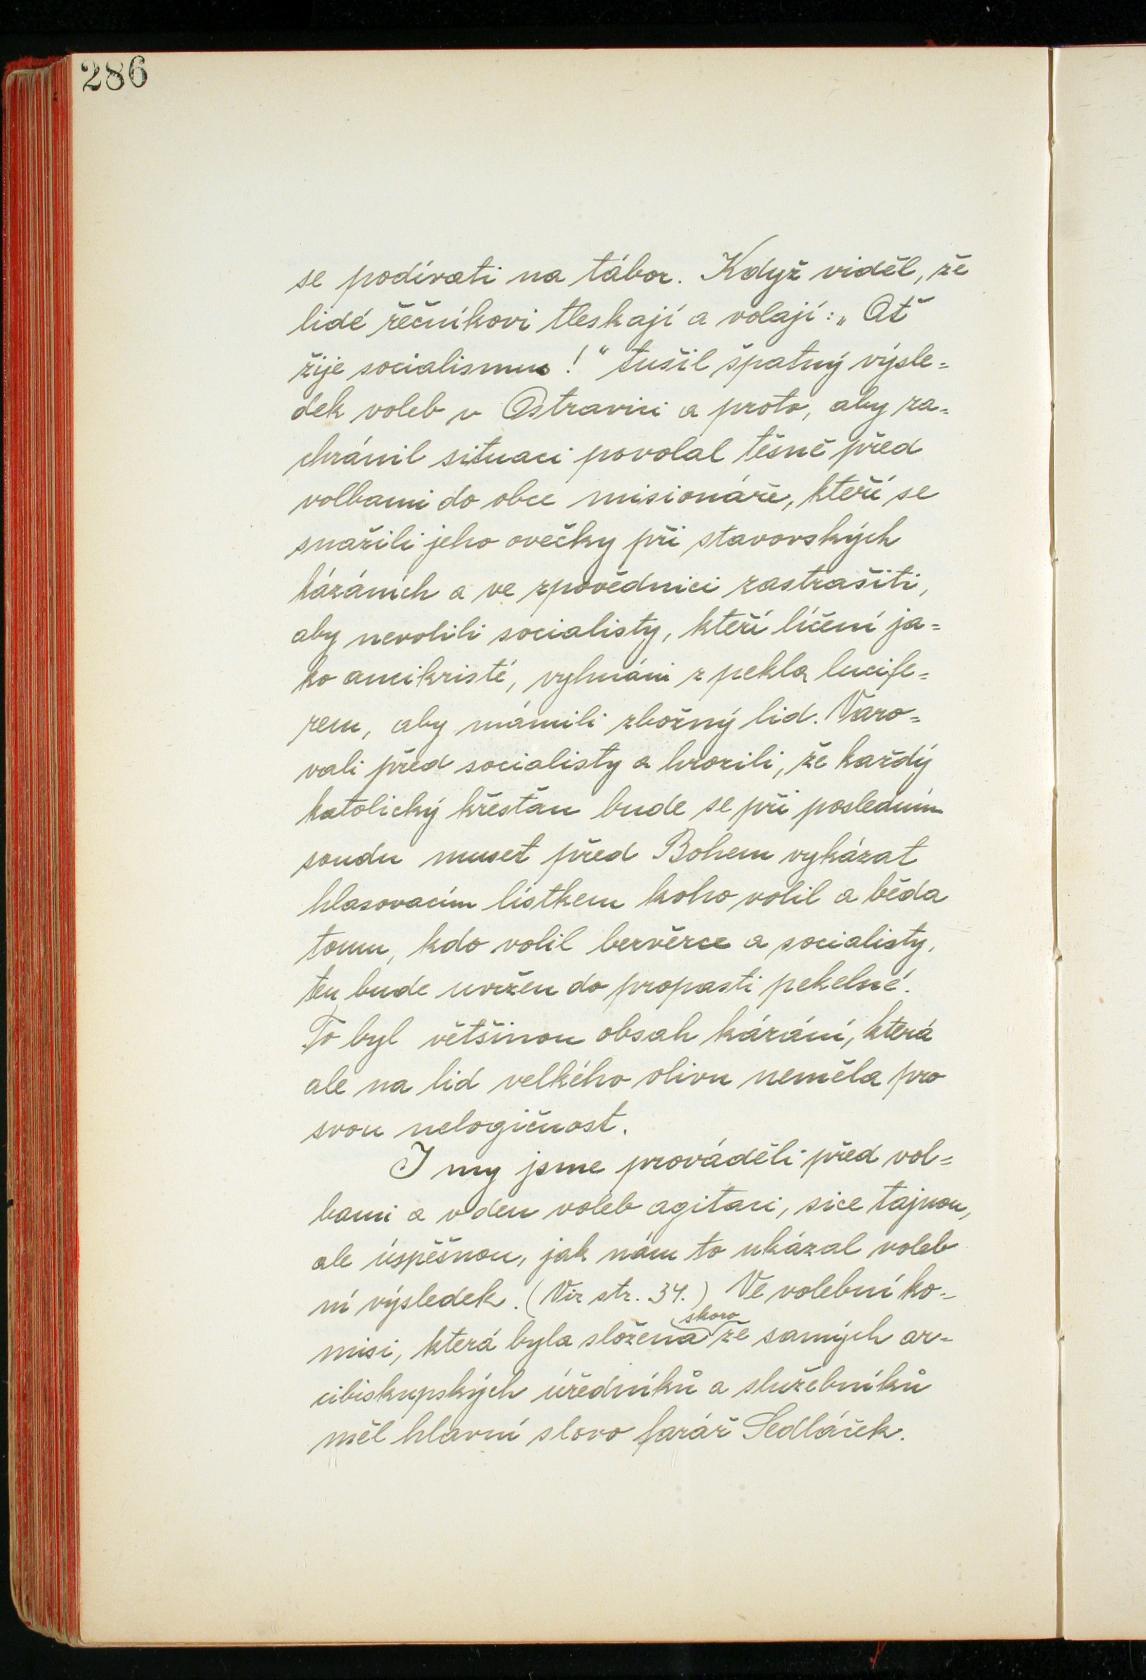 286
se podívati na tábor. Když viděl, že
lidé řečníkovi tleskají a volají: „Ať
žije socialismus!“ tušil špatný výsle=
dek voleb v Ostravici a proto, aby za=
chránil situaci povolal těsně před
volbami do obce misionáře, kteří se
snažili jeho ovečky při stavovských
kázáních a ve zpovědnici zastrašiti,
aby nevolili socialisty, kteří líčeni ja=
ko ancikristé, vyhnáni z pekla lucife=
rem, aby mámili zbožný lid. Varo=
vali před socialisty a hrozili, že každý
katolický křesťan bude se při posledním
soudu muset před Bohem vykázat
hlasovacím lístkem koho volil a běda
tomu, kdo volil bezvěrce a socialisty,
ten bude uvržen do propasti pekelné.
To byl většinou obsah kázání, která
ale na lid velkého vlivu neměla pro
svou nelogičnost.
I my jsme prováděli před vol=
bami a v den voleb agitaci, sice tajnou,
ale úspěšnou, jak nám to ukázal voleb
ní výsledek. (Viz str. 34.) Ve volební ko=
misi, která byla složena skoro ze samých ar=
cibiskupských úředníků a služebníků
měl hlavní slovo farář Sedláček.